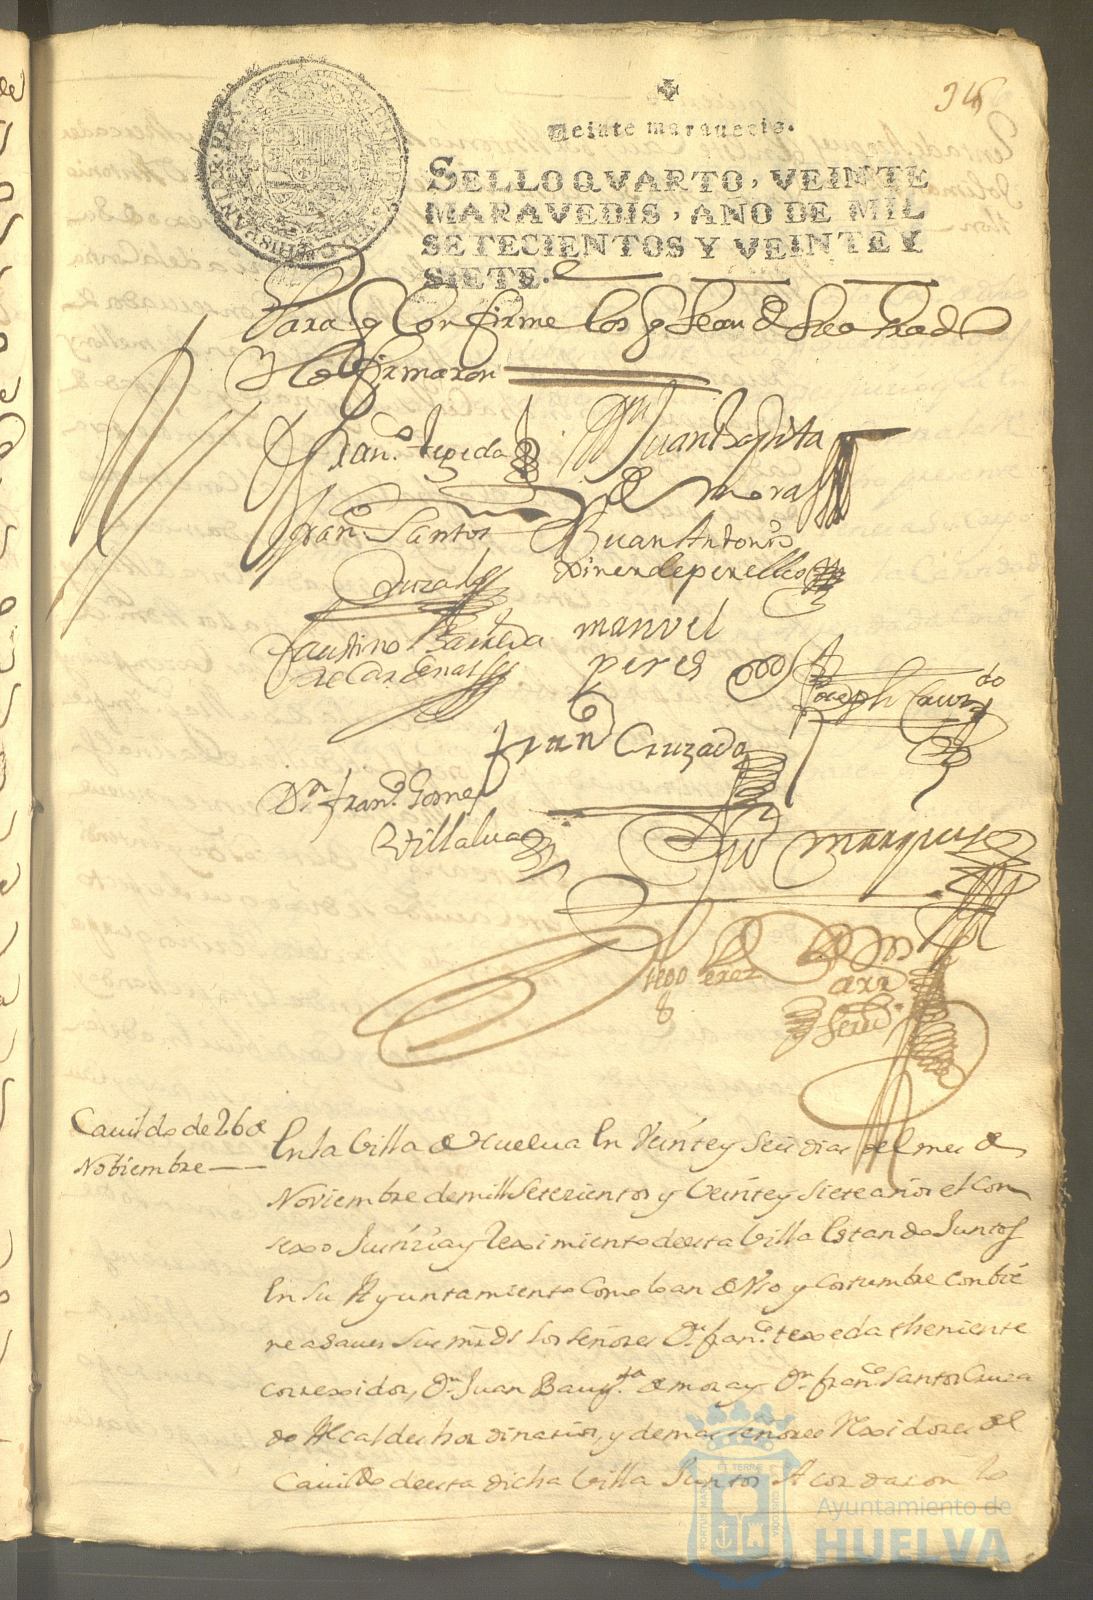 946
Veinte maravedis.
SELLO QVARTO, VEINTE
MARAVEDIS, AÑO DE MIL
SETECIENTOS Y VEINTE Y
SIETE.
Para q Confirme los
Lo firmaron
Fran.co texeda Dn Juan Bapsta
de mora
Fran.co Santos Juan Antonio
Cruzado
Faustino Barreda manuel
de Cardenas peres Joseph Cruzdo
Franco Cruzado
Dn Fran.co Gomes
Villalua marques
Diego Perez
Cauildo de 26 de
Nobiembre
En la Villa de Huelua En Veinte y Seis dias del mes de
Noviembre de mill Setezientos y Veinte y siete años el Con
sexo Justizia y Reximiento desta Villa Estando Juntos
En su Ayuntamiento Como lo an de Vso y Costumbre conbie
ne asauer sus mrds los señores Dn franco texeda theniente
correxidor, Dn Juan Bauta de mora y Dn franco Santos Cruza
do Alcaldes hordinarios, y demas señores Rexidores del
Cauildo desta dicha Villa Juntos Acordaron lo
Ayuntamiento de
HUELVA